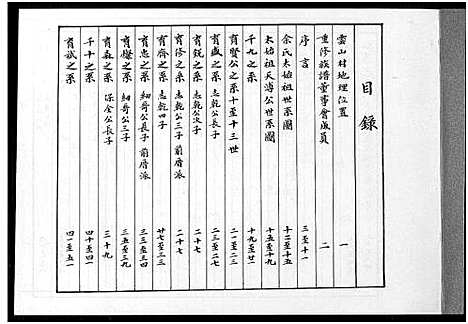 目錄
雲山村地理位置 一
重修族譜董事會成員 二
序言 三至十一
余氏太始祖世系圖 十二至十五
太始祖天溥公世系圖 十五至十九
千九之系 十九至廿一
育賢公之系十至十三世 二一至二三
育盛之系 志乾公長子 二三至二七
育銳之系 志乾公次子 二十七
育修之系 志乾公三子 前厝派 二十七
育齊之系 志乾四子 廿七至三三
育忠之系 細哥公長子 前厝派 三三至三四
育燦之系 細哥公三子 三五至三九
育森之系 深全公長子 三十九
千十之系 四十至四一
育斌之系 四一至五一